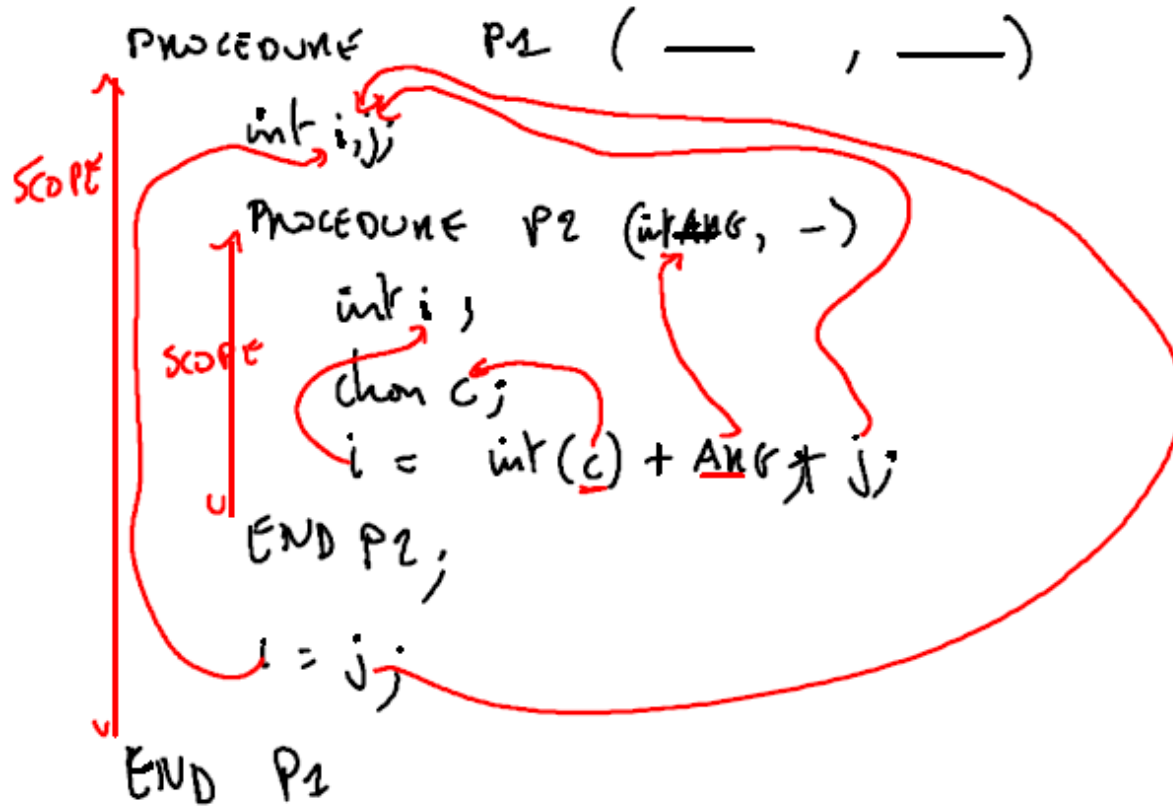 PROCEDURE P1 ( — , — )
SCOPE
int i,j;
PROCEDURE P2 (int ARG, -)
SCOPE
int i ;
char c;
i = int(c) + ARG * j;
END P2;
i = j;
END P1